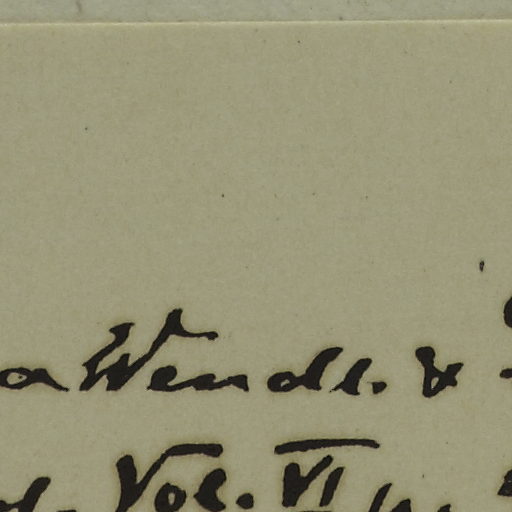 a Wendl. &
Vol. VI